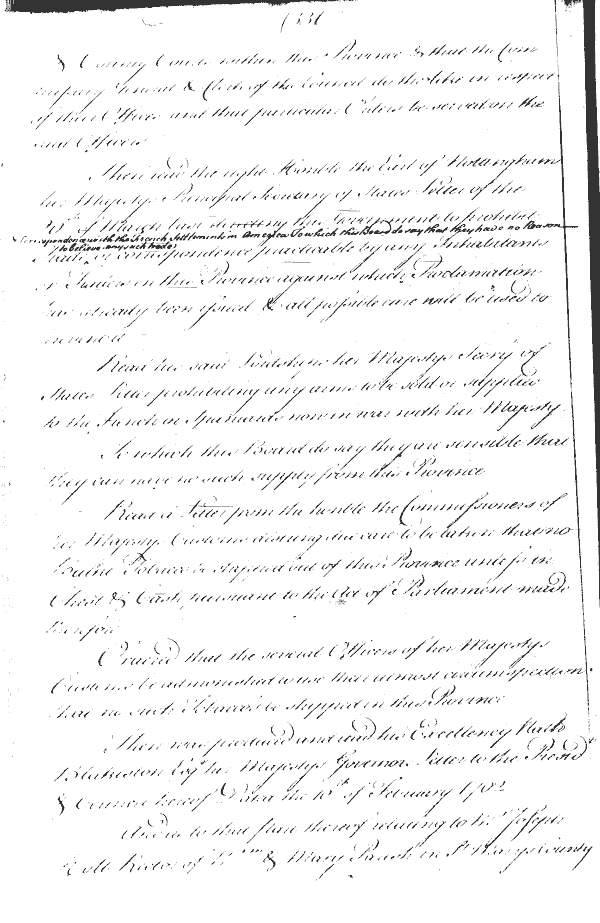 (331
& County Courts within this Province & that the Com
missary General & Clerk of the Council do the like in respect
of their Offices and that particular Orders be served on the
said Officers
Then read the right Honble the Earl of Nottingham
her Majestys Principal Secretary of States Letter of the
of March last directing this Government to prohibit
Correspondence with the French Settlements in America To which this Board do say that they have no Reason
to believe any such trade
Trade or correspondence practicable by any Inhabitants
or Traders in this Province against which Proclamation
has already been issued & all possible care will be used to
prevent it
Read his said Lordships her Majestys Secry of
States Letter prohibiting any arms to be sold or supplied
to the French or Spaniards now in war with her Majesty
To which this Board do say they are sensible that
they can have no such supply from this Province
Read a Letter from the honble the Commissioners of
her Majestys Customs desiring due care to be taken that no
Bulke Tobacco be shipped out of this Province unless in
Chest & Cask pursuant to the Act of Parliament made
therefore
Ordered that the several Officers of her Majestys
Customs be admonished to use their utmost circumspection
that no such Tobacco be shipped in this Province
Then was produced and read his Excellency Nath
Blakiston Esqr her Majestys Governors Letter to the Presidt
& Council hereof Dated the 10th of February 1702
And as to that part thereof relating to Mr Joseph
Holt Rector of Wm & Mary Parish in St Marys County